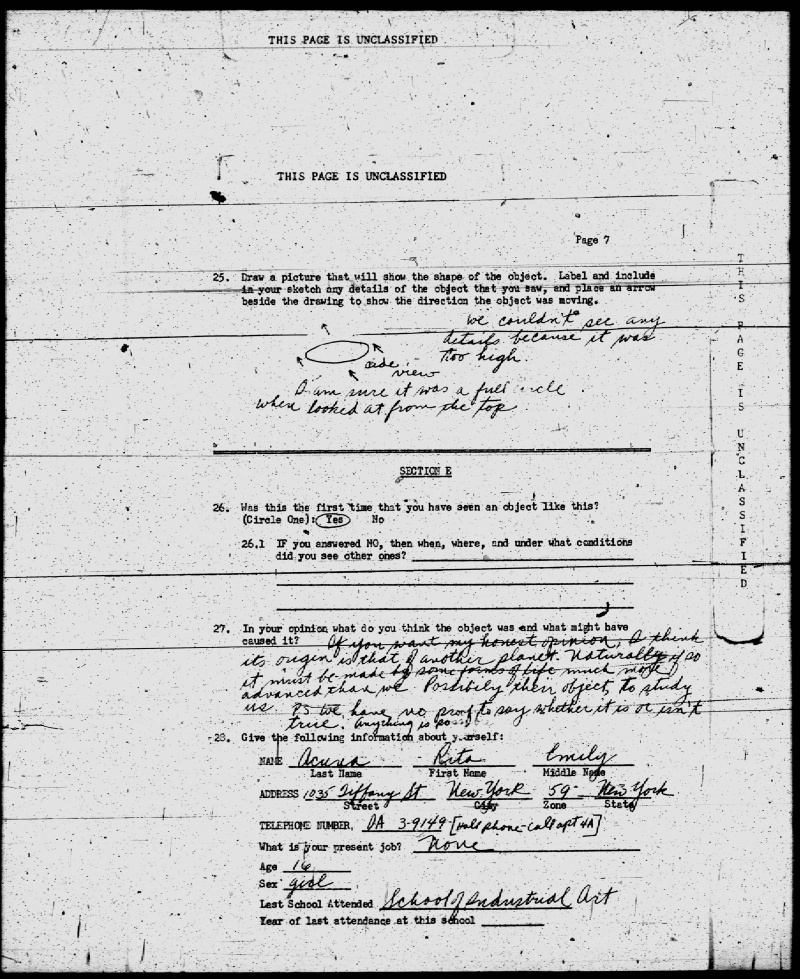 THIS PAGE IS UNCLASSIFIED
THIS PAGE IS UNCLASSIFIED
Page 7
25. Draw a picture that will show the shape of the object. Label and include
in your sketch any details of the object that you saw, and place an arrow
beside the drawing to show the direction the object was moving.
We couldn't see any
details because it was
too high.
side
view
I am sure it was a full circle
when looked at from the top.
SECTION E
26. Was this the first time that you have seen an object like this?
(Circle One): Yes No
26.1 IF you answered NO, then when, where, and under what conditions
did you see other ones?
27. In your opinion what do you think the object was and what might have
caused it? If you want my honest opinion, I think
its origin is that of another planet. Naturally if so
it must be made by some forms of life much more
advanced than we. Possibely their object, to study
us. PS We have no proof to say whether it is or isn't
true. Anything is
28. Give the following information about yourself:
NAME Acuna Rita Emily
Last Name First Name Middle Name
ADDRESS 1035 Tiffany St New York 59 New York
Street City Zone State
TELEPHONE NUMBER, DA 3-9149 [Hall phone-call apt 4A]
What is your present job? None
Age 16
Sex girl
Last School Attended School of Industrial Art
Year of last attendance at this school
THIS PAGE IS UNCLASSIFIED